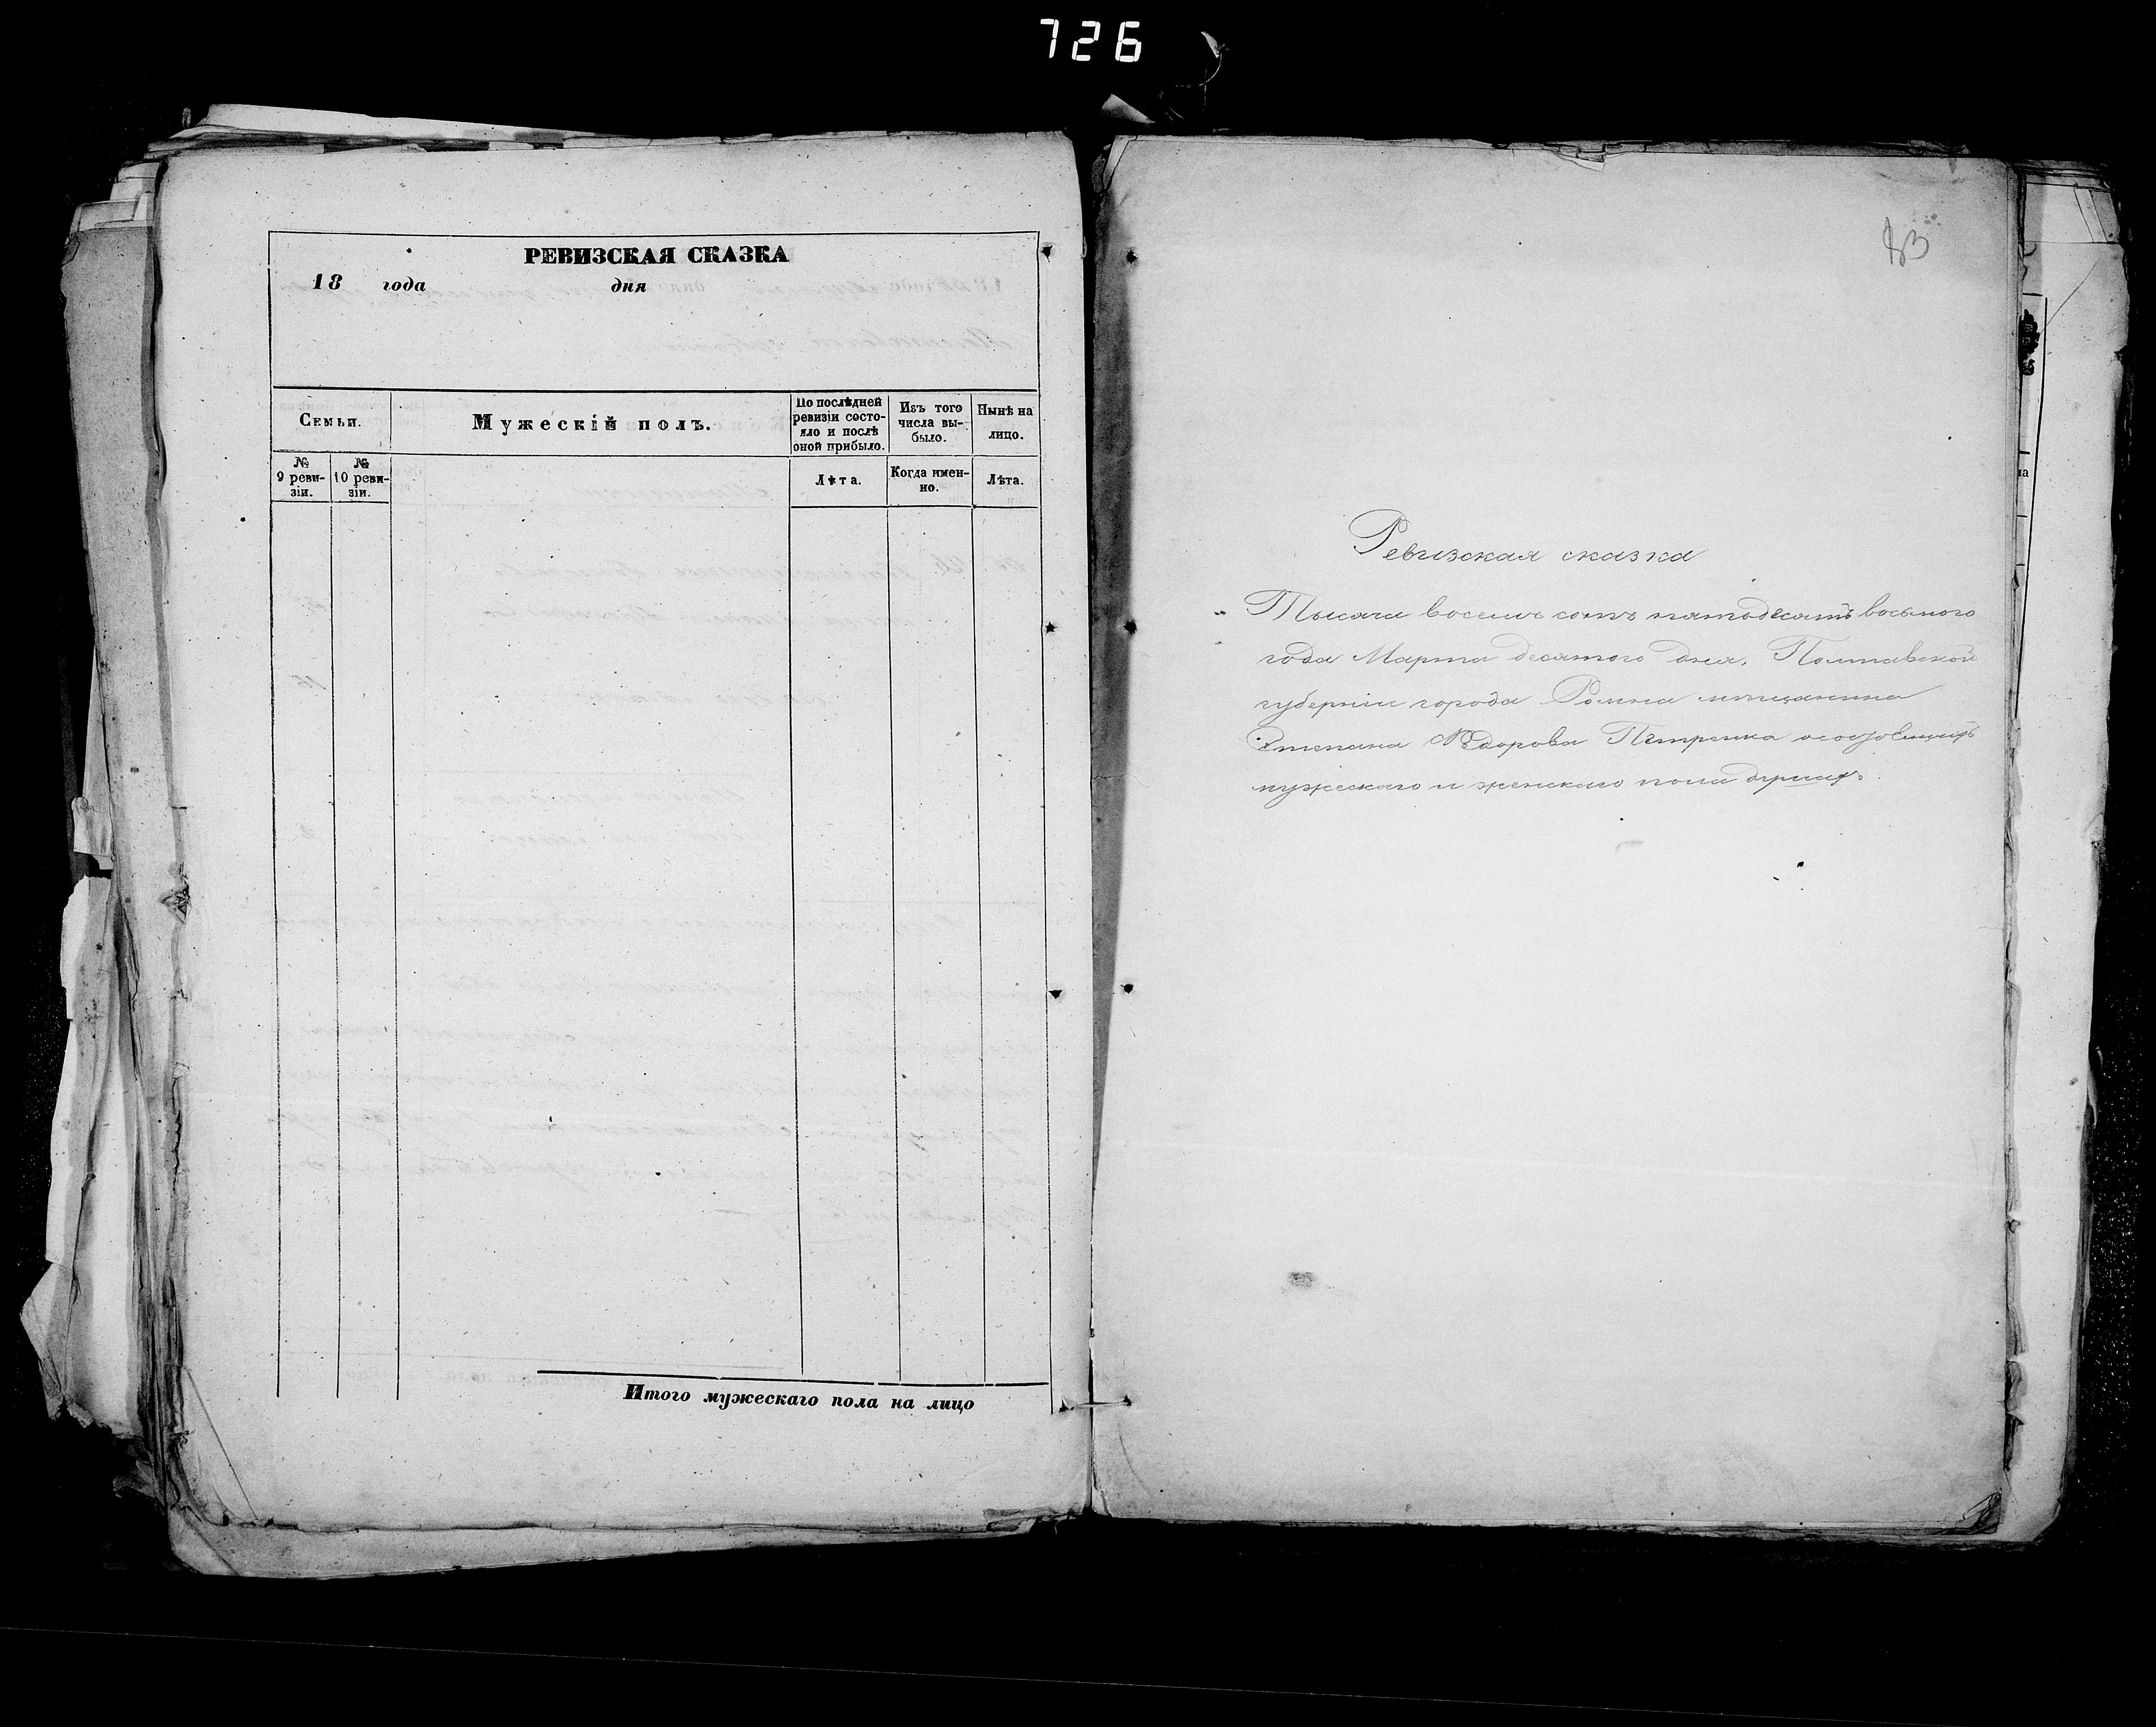 726
РЕВИЗСКАЯ СКАЗКА
18 года дня
Семьи.
Мужескій полъ.
По послѣдней ревизіи состояло и послѣ оной прибыло.
Изъ того числа выбыло.
Нынѣ на лицо.
№ 9 ревизіи.
№ 10 ревизіи.
Лѣта.
Когда именно.
Лѣта.
Итого мужескаго пола на лицо
83
Ревизская сказка
Тысяча восемь сотъ пятьдесятъ восьмого
года Марта десятого дня, Полтавской
губерніи города Ромна мѣщанина
Степана Федорова Петренка о состоящихъ
мужескаго и женскаго пола душахъ.